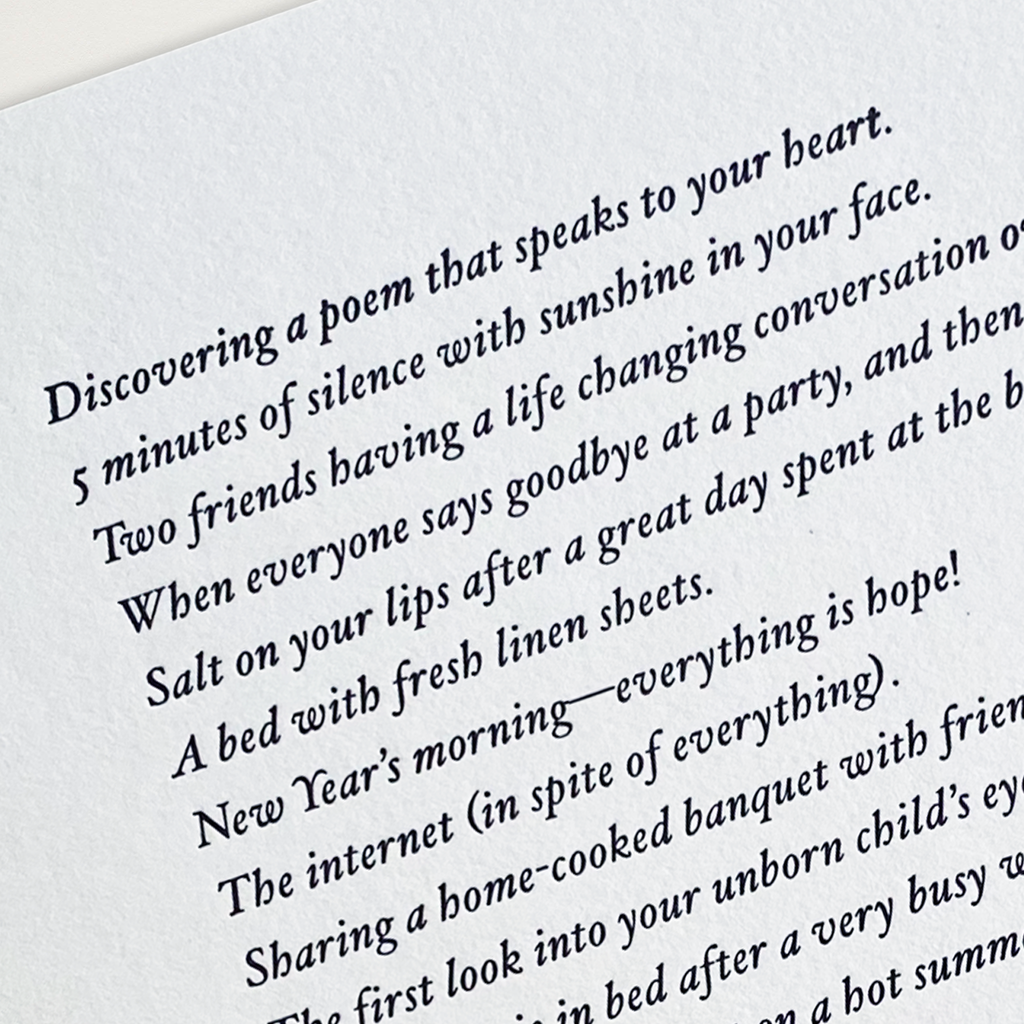 Discovering a poem that speaks to your heart.
5 minutes of silence with sunshine in your face.
Two friends having a life changing conversation
When everyone says goodbye at a party, and then
Salt on your lips after a great day spent at the
A bed with fresh linen sheets.
New Year’s morning—everything is hope!
The internet (in spite of everything).
Sharing a home-cooked banquet with
The first look into your unborn child’s
in bed after a very busy
on a hot